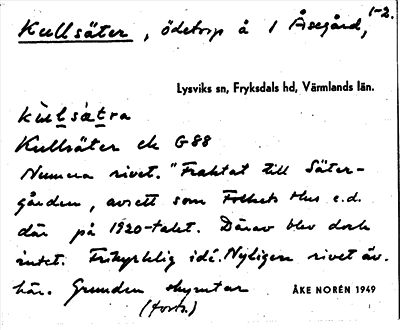 Kullsäter, ödetorp å 1 Åsegård, 1-2.
Lysviks sn, Fryksdals hd, Värmlands län.
kùlsàtra
Kullsäter ek G88
Numera rivet. "Fraktat till Säter-
gården, avsett som Folkets Hus e.d.
där på 1920-talet. Därav blev dock
intet. Frikyrklig idé. Nyligen rivet äv.
här. Grunden skymtar
(forts.)
ÅKE NORÉN 1949